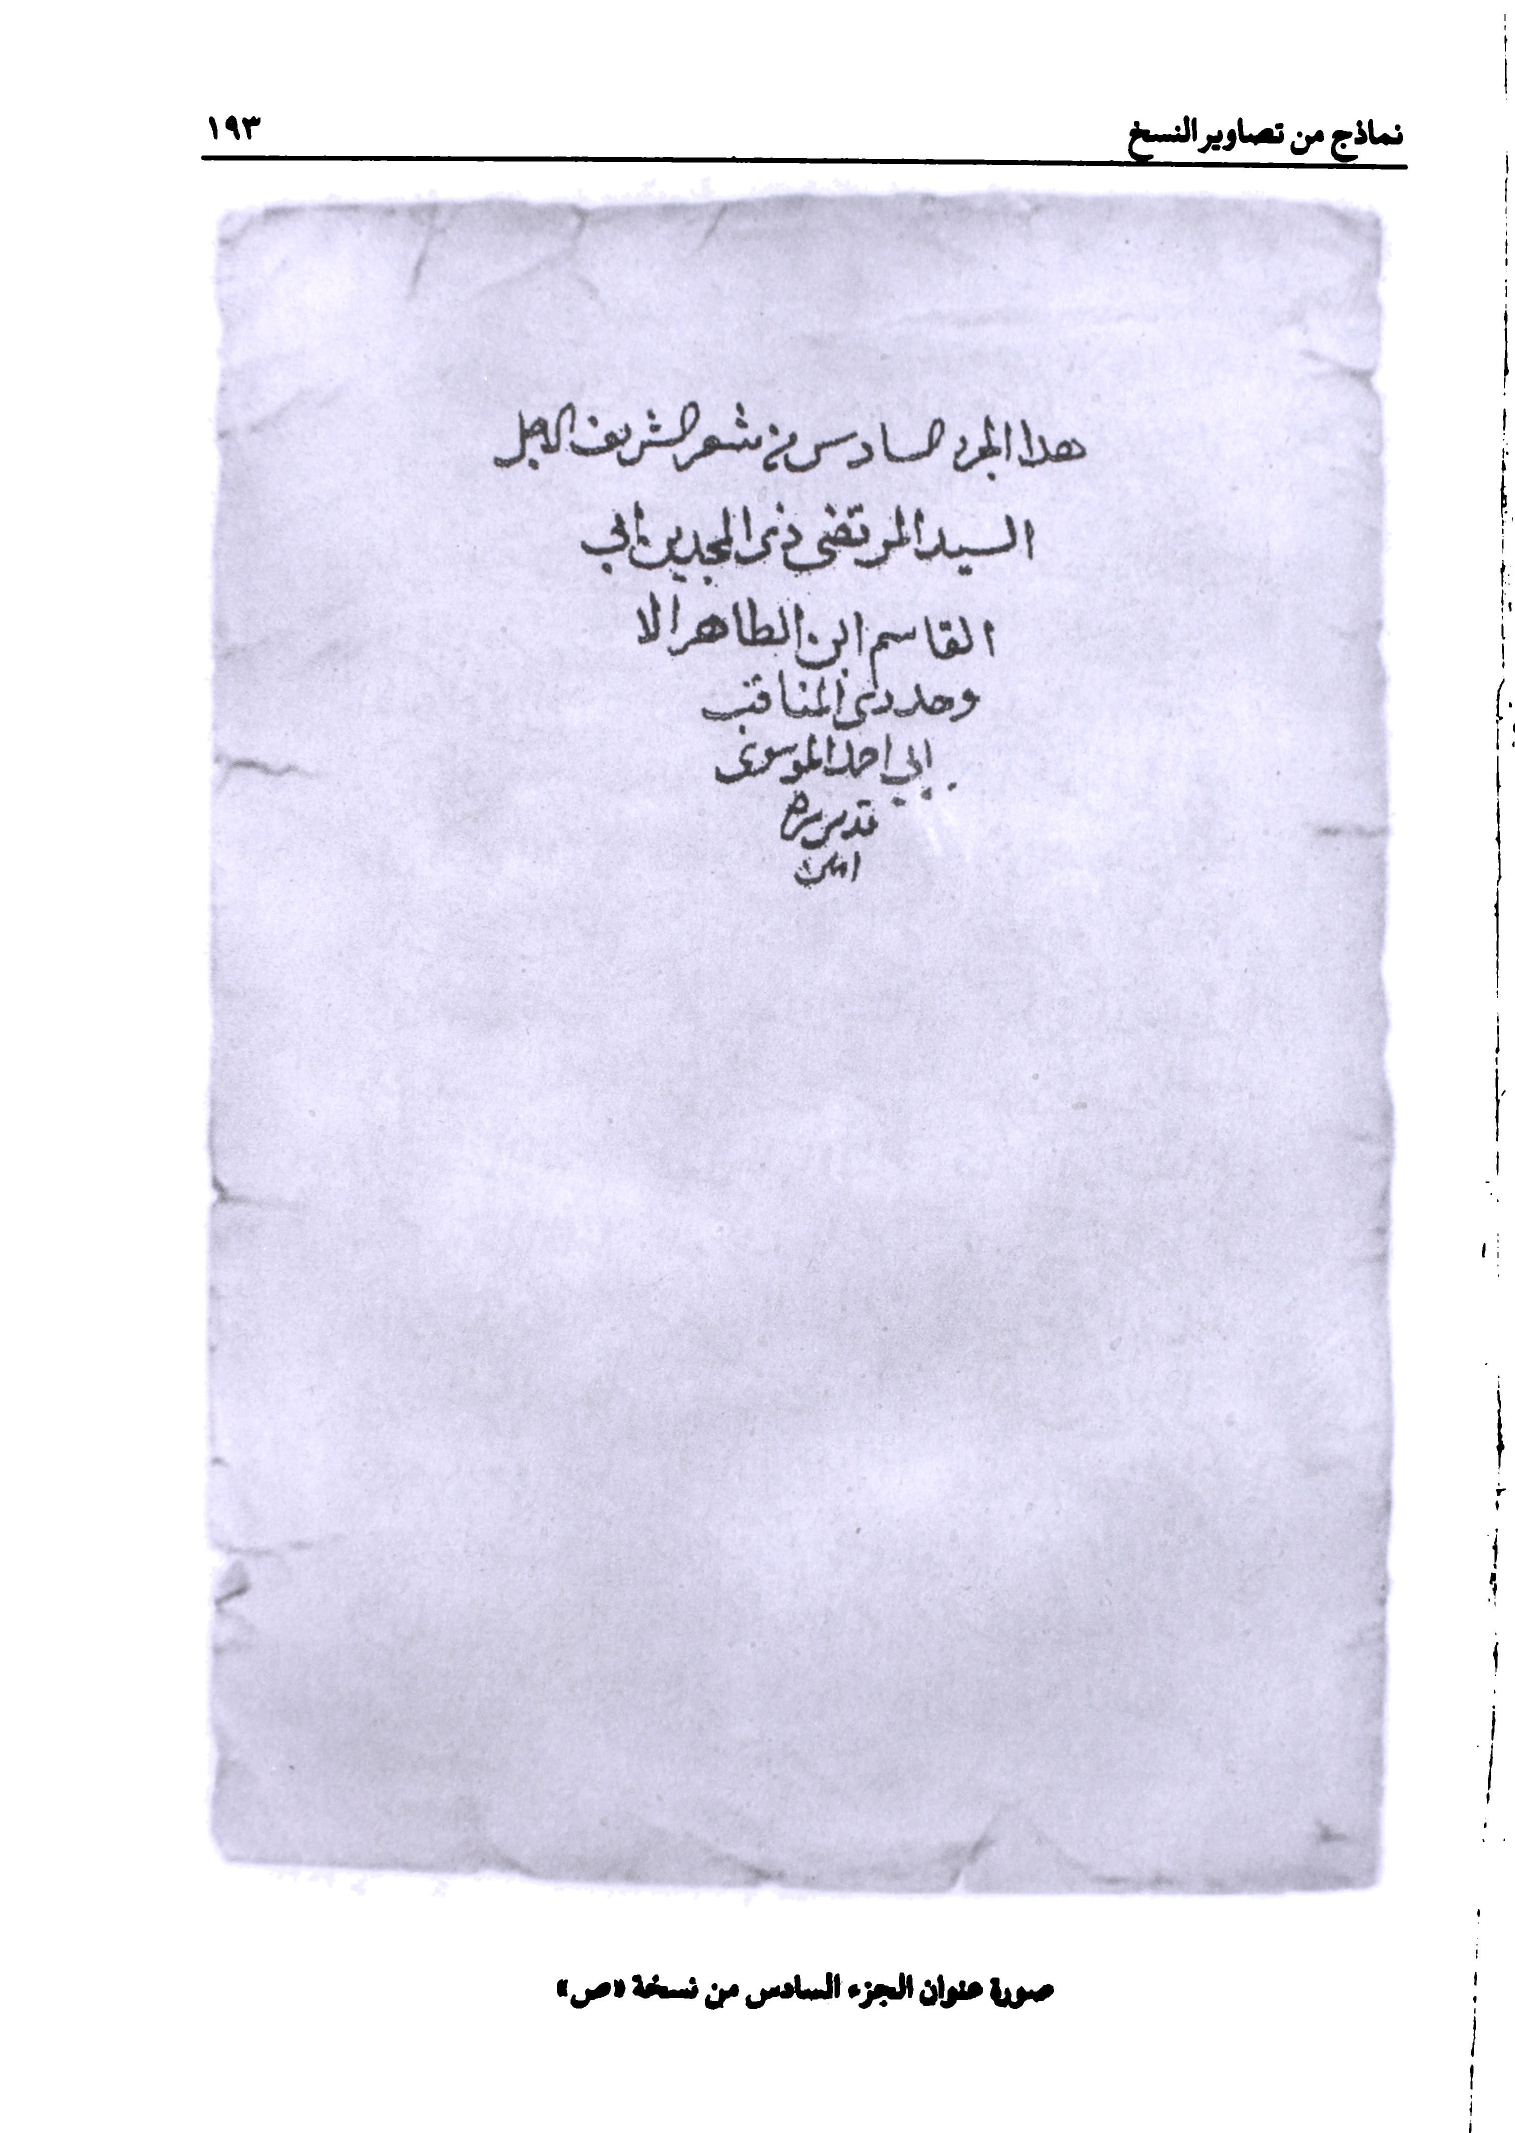 نماذج من تصاوير النسخ
١٩٣
هذا الجزء السادس من شعر الشريف الاجل
السيد المرتضى ذى المجدين ابي
القاسم ابن الطاهر الا
وحد ذى المناقب
ابي احمد الموسوى
قدس سره
امين
صورة عنوان الجزء السادس من نسخة «ص»